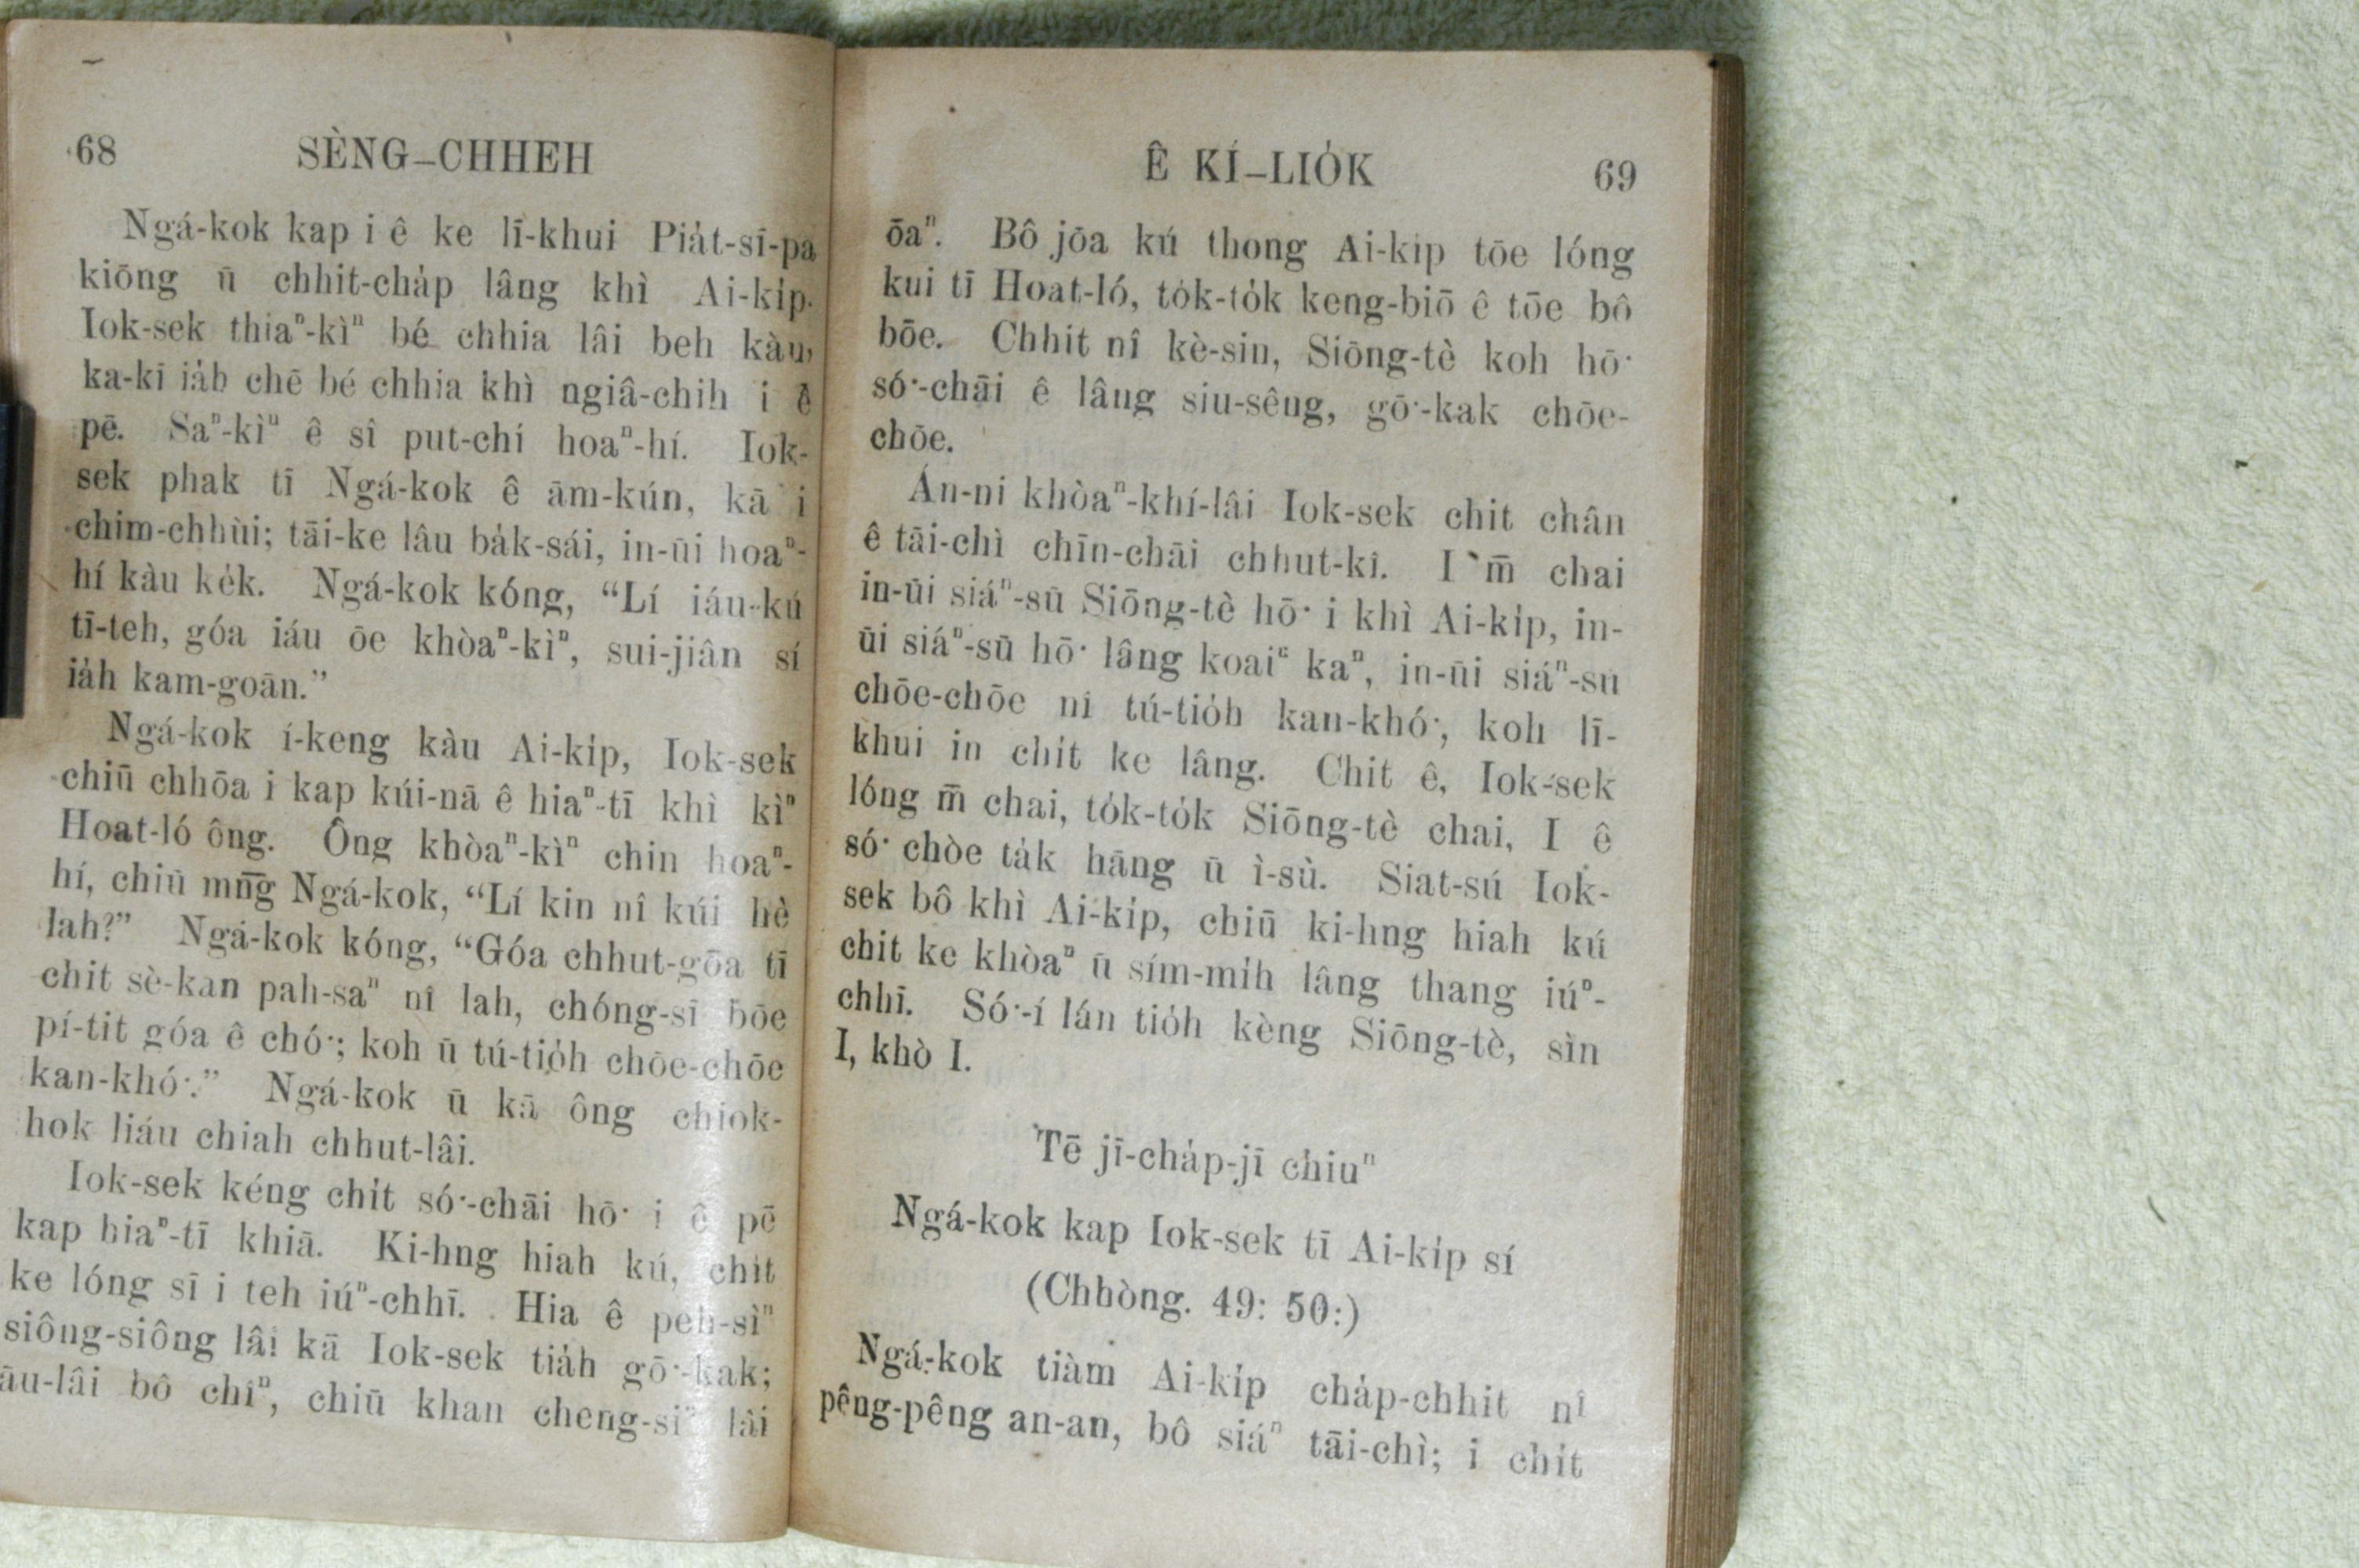 68 SÈNG-CHHEH
Ngá-kok kap i ê ke lī-khui Pia̍t-sī-pa
kiōng ū chhit-cha̍p lâng khì Ai-ki̍p.
Iok-sek thiaⁿ-kìⁿ bé chhia lâi beh kàu,
ka-kī ia̍h chē bé chhia khì ngiâ-chih i ê
pē. Saⁿ-kìⁿ ê sî put-chí hoaⁿ-hí. Iok-
sek phak tī Ngá-kok ê ām-kún, kā i
chim-chhùi; tāi-ke lâu ba̍k-sái, in-ūi hoaⁿ-
hí kàu ke̍k. Ngá-kok kóng, “Lí iáu-kú
tī-teh, góa iáu ōe khòaⁿ-kìⁿ, sui-jiân sí
ia̍h kam-goān.”
Ngá-kok í-keng kàu Ai-ki̍p, Iok-sek
chiū chhōa i kap kúi-nā ê hiaⁿ-tī khì kìⁿ
Hoat-ló ông. Ông khòaⁿ-kìⁿ chin hoaⁿ-
hí, chiū mn̄g Ngá-kok, “Lí kin nî kúi hè
lah?” Ngá-kok kóng, “Góa chhut-gōa tī
chit sè-kan pah-saⁿ nî lah, chóng-sī bōe
pí-tit góa ê chó͘; koh ū tú-tio̍h chōe-chōe
kan-khó͘.” Ngá-kok ū kā ông chiok-
hok liáu chiah chhut-lâi.
Iok-sek kéng chi̍t só͘-chāi hō͘ i ê pē
kap hiaⁿ-tī khiā. Ki-hng hiah kú, chi̍t
ke lóng sī i teh iúⁿ-chhī. Hia ê peh-sìⁿ
siông-siông lâi kā Iok-sek tia̍h gō͘-kak;
āu-lâi bô chîⁿ, chiū khan cheng-siⁿ lâi
Ê KÍ-LIO̍K 69
ōaⁿ. Bô jōa kú thong Ai-ki̍p tōe lóng
kui tī Hoat-ló, to̍k-to̍k keng-biō ê tōe bô
bōe. Chhit nî kè-sin, Siōng-tè koh hō͘
só͘-chāi ê lâng siu-sêng, gō͘-kak chōe-
chōe.
Án-ni khòaⁿ-khí-lâi Iok-sek chit chân
ê tāi-chì chīn-chāi chhut-kî. I m̄ chai
in-ūi siáⁿ-sū Siōng-tè hō͘ i khì Ai-ki̍p, in-
ūi siáⁿ-sū hō͘ lâng koaiⁿ kaⁿ, in-ūi siáⁿ-sū
chōe-chōe nî tú-tio̍h kan-khó͘, koh lī-
khui in chi̍t ke lâng. Chit ê, Iok-sek
lóng m̄ chai, to̍k-to̍k Siōng-tè chai, I ê
só͘ chòe ta̍k hāng ū ì-sù. Siat-sú Iok-
sek bô khì Ai-ki̍p, chiū ki-hng hiah kú
chit ke khòaⁿ ū sím-mi̍h lâng thang iúⁿ-
chhī. Só͘-í lán tio̍h kèng Siōng-tè, sìn
I, khò I.
Tē jī-cha̍p-jī chiuⁿ
Ngá-kok kap Iok-sek tī Ai-ki̍p sí
(Chhòng. 49: 50:)
Ngá-kok tiàm Ai-ki̍p cha̍p-chhit nî
pêng-pêng an-an, bô siáⁿ tāi-chì; i chi̍t